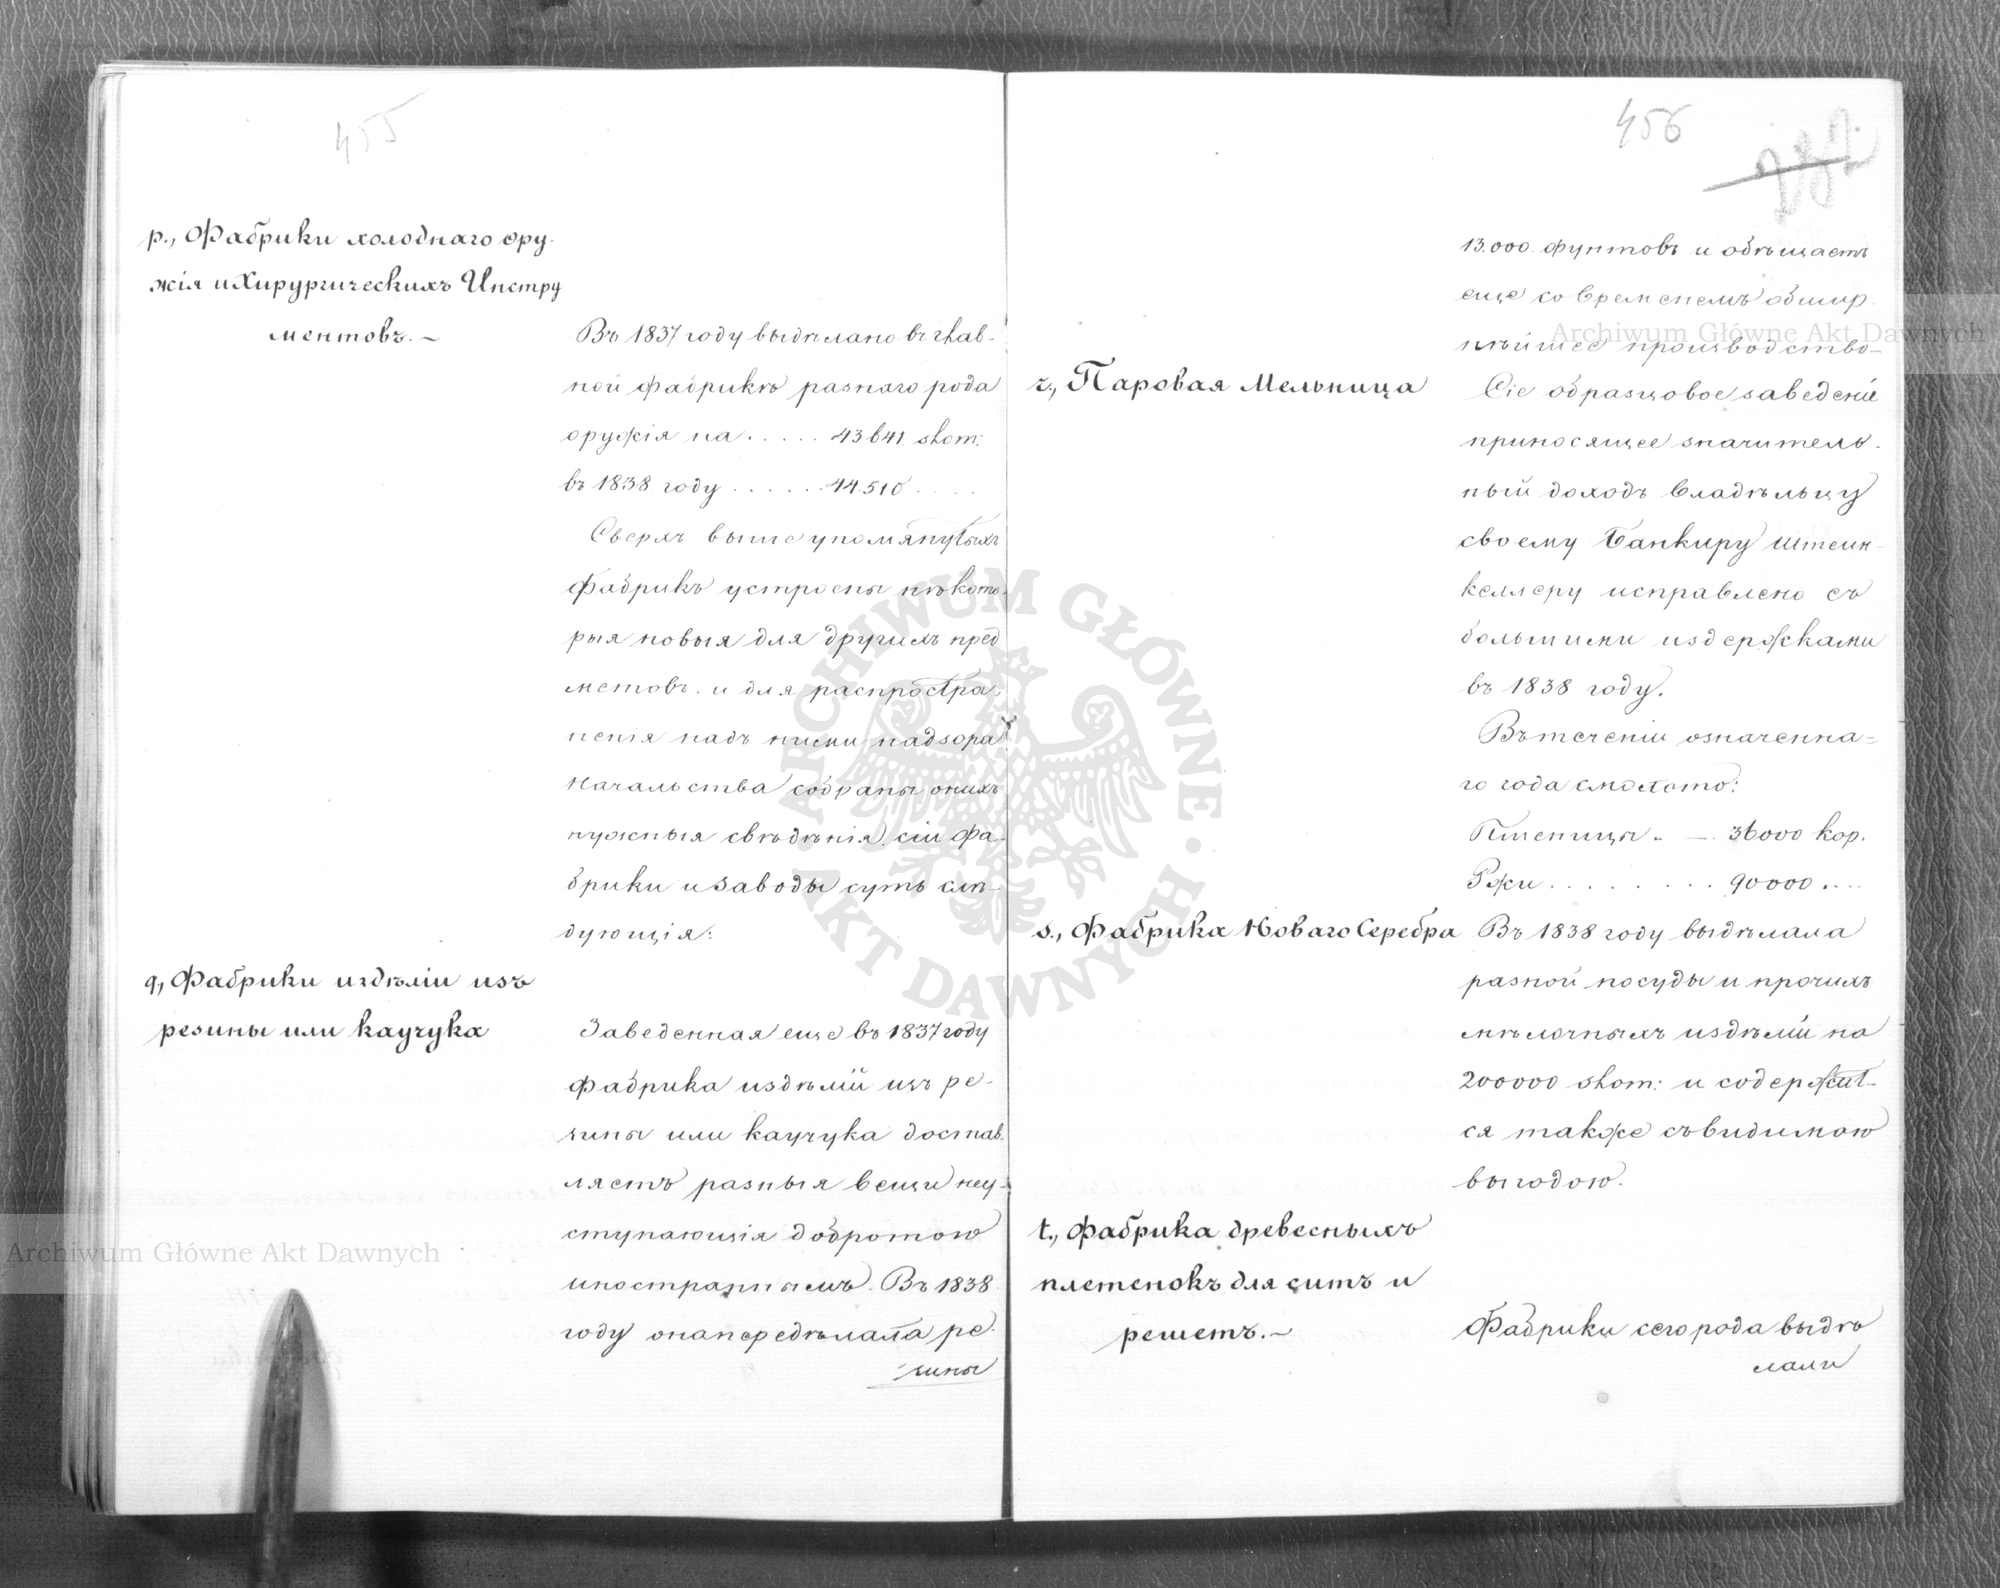 455
р., Фабрики холоднаго ору-
жія и Хирургическихъ Инстру
ментовъ. —
Въ 1837 году выдѣлано въ глав-
ной фабрикѣ разнаго рода
оружія на . . . . . 43641 злот:
въ 1838 году . . . . . . 44510 . . . .
Сверхъ вышеупомянутыхъ
фабрикъ устроены нѣкото-
рыя новыя для другихъ пред
метовъ. и для распростра-
ненія надъ ними надзора
Начальства собраны о нихъ
нужныя свѣдѣнія, сіи фа-
брики и Заводы суть слѣ-
дующія:
q., Фабрики издѣліи изъ
резины или каучука
Заведенная еще въ 1837 году
фабрика издѣлій изъ ре-
зины или каучука достав-
ляетъ разныя вещи неу-
ступающія добротою
иностраннымъ. Въ 1838
году она передѣлала ре-
зины
456
13.000 фунтовъ и обѣщаетъ
еще со временемъ обшир
нѣйшее производство-
r., Паровая Мельница
Сіе образцовое заведеніе
приносящее значитель-
ный доходъ Владѣльцу
своему Банкиру Штеин-
келлеру исправлено съ
большими издержками
въ 1838 году.
Въ теченіи означенна-
го года смолото:
Пшеницы .. — 36000 кор.
Ржи . . . . . . . . 90000 . . . .
s., Фабрика Новаго Серебра
Въ 1838 году выдѣлала
разной посуды и прочихъ
мѣлочныхъ издѣлій на
200000 злот: и содержит-
ся также съ видимою
выгодою.
t., Фабрика древесныхъ
плетенокъ для ситъ и
решетъ. —
Фабрики сего рода выдѣ
лали
ARCHIWUM GŁÓWNE · AKT DAWNYCH ·
Archiwum Główne Akt Dawnych
Archiwum Główne Akt Dawnych